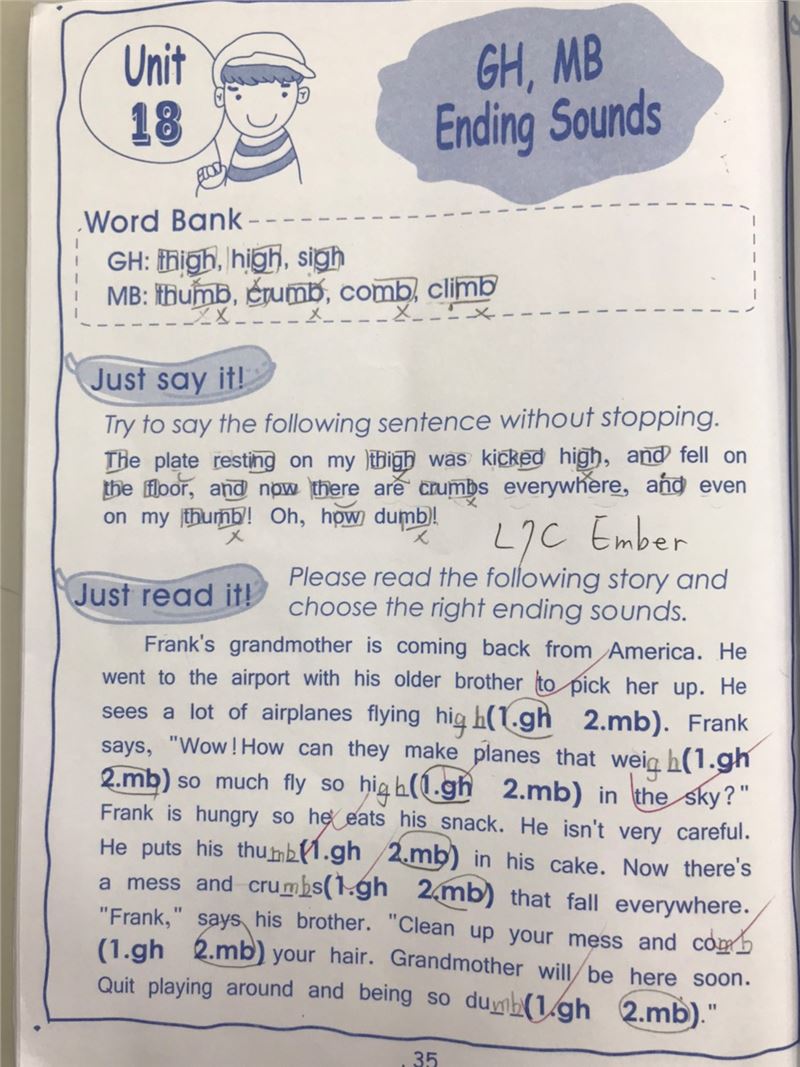 Unit
18
GH, MB
Ending Sounds
Word Bank
GH: thigh, high, sigh
MB: thumb, crumb, comb, climb
Just say it!
Try to say the following sentence without stopping.
The plate resting on my thigh was kicked high, and fell on
the floor, and now there are crumbs everywhere, and even
on my thumb! Oh, how dumb!
LJC Ember
Just read it!
Please read the following story and
choose the right ending sounds.
Frank's grandmother is coming back from America. He
went to the airport with his older brother to pick her up. He
sees a lot of airplanes flying high(1.gh 2.mb). Frank
says, "Wow!How can they make planes that weigh(1.gh
2.mb) so much fly so high(1.gh 2.mb) in the sky?"
Frank is hungry so he eats his snack. He isn't very careful.
He puts his thumb(1.gh 2.mb) in his cake. Now there's
a mess and crumbs(1.gh 2.mb) that fall everywhere.
"Frank," says his brother. "Clean up your mess and comb
(1.gh 2.mb) your hair. Grandmother will be here soon.
Quit playing around and being so dumb(1.gh 2.mb)."
35